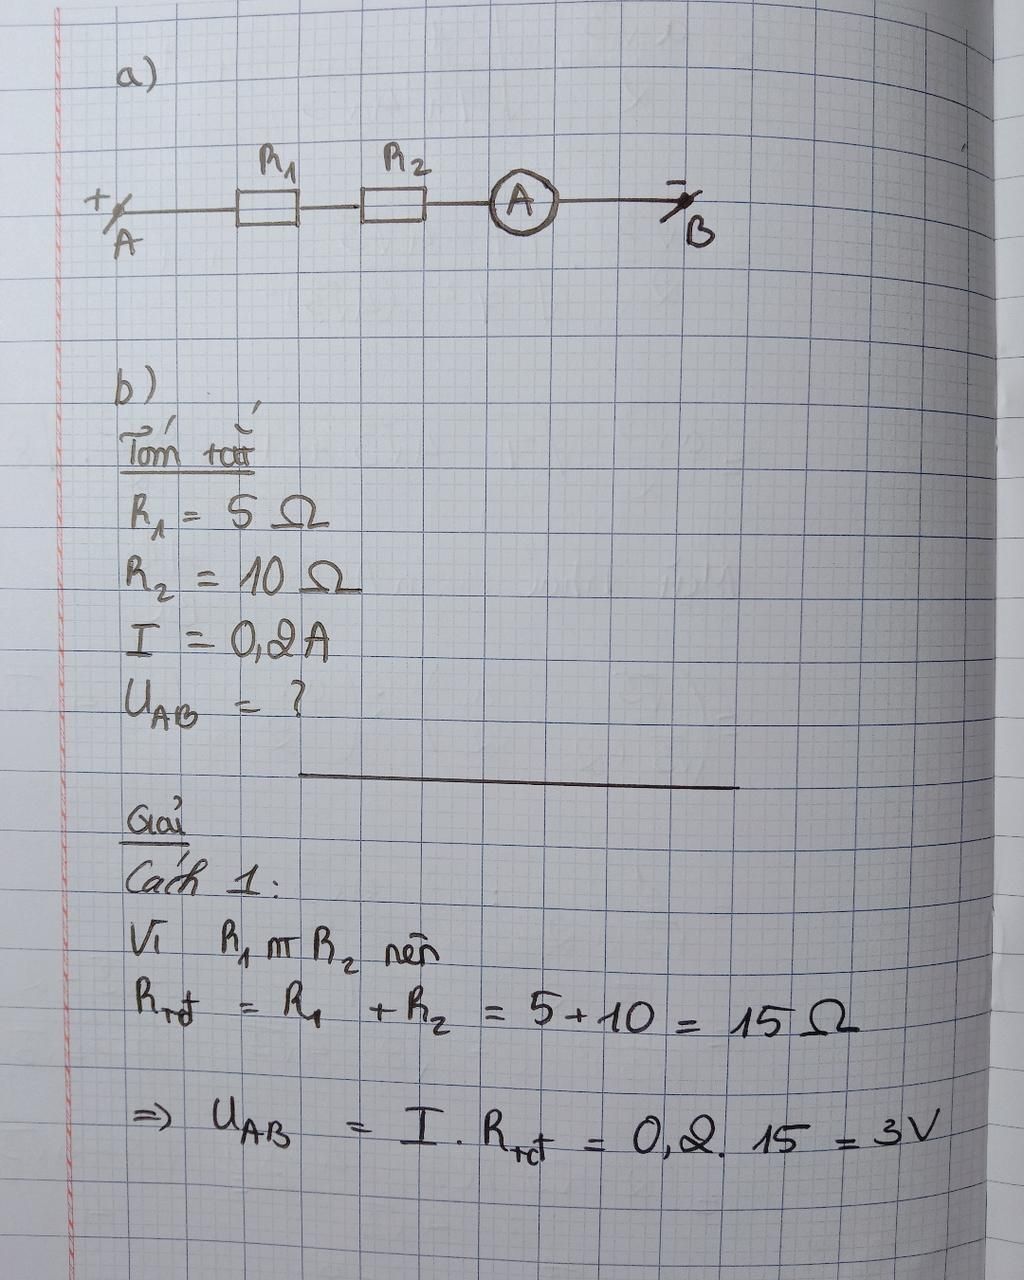 a)
R₁ R₂
+ A -
A B
b)
Tóm tắt
R₁ = 5 Ω
R₂ = 10 Ω
I = 0,2A
U_AB = ?
Giải
Cách 1:
Vì R₁ nt R₂ nên
R_tđ = R₁ + R₂ = 5 + 10 = 15 Ω
=> U_AB = I . R_tđ = 0,2. 15 = 3V